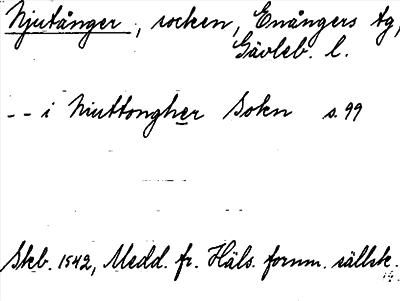 Njutånger, socken, Enångers tg,
Gävleb. l.
-- i Niuttongher Sokn s. 99
Skb. 1542, Medd. fr. Häls. fornm. sällsk.